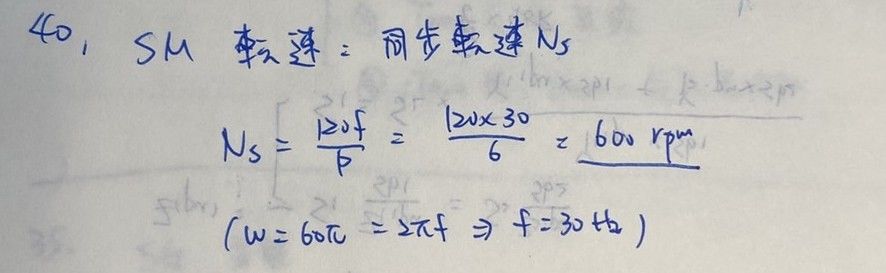 40, SM 転速 : 同步転速 Ns
Ns = 120f/P = 120×30/6 = 600 rpm
(ω = 60π = 2πf ⇒ f = 30 Hz)